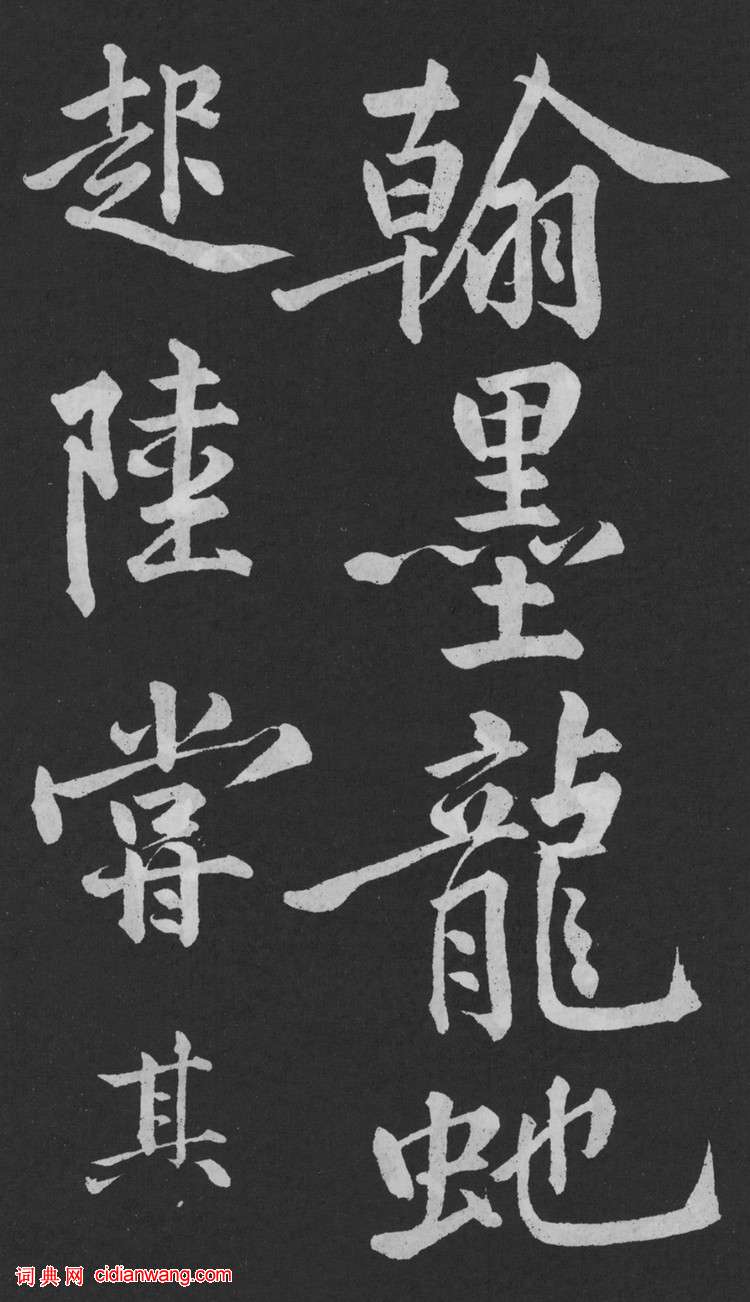 翰墨龍虵
起陸嘗其
词典网 cidianwang.com